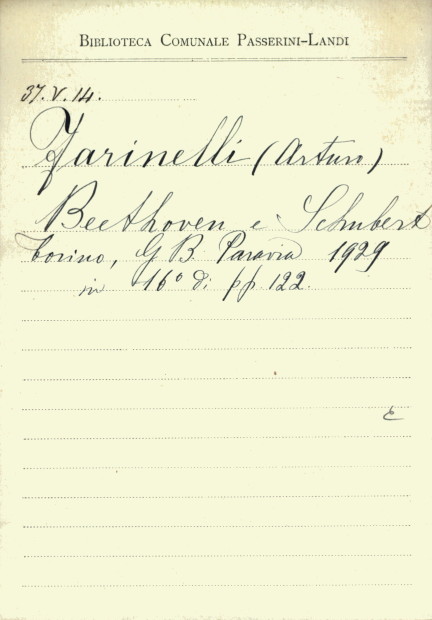 BIBLIOTECA COMUNALE PASSERINI-LANDI
37.V.14.
Farinelli (Arturo)
Beethoven e Schubert
Torino, G B. Paravia 1929
in 16° di pp. 122.
E